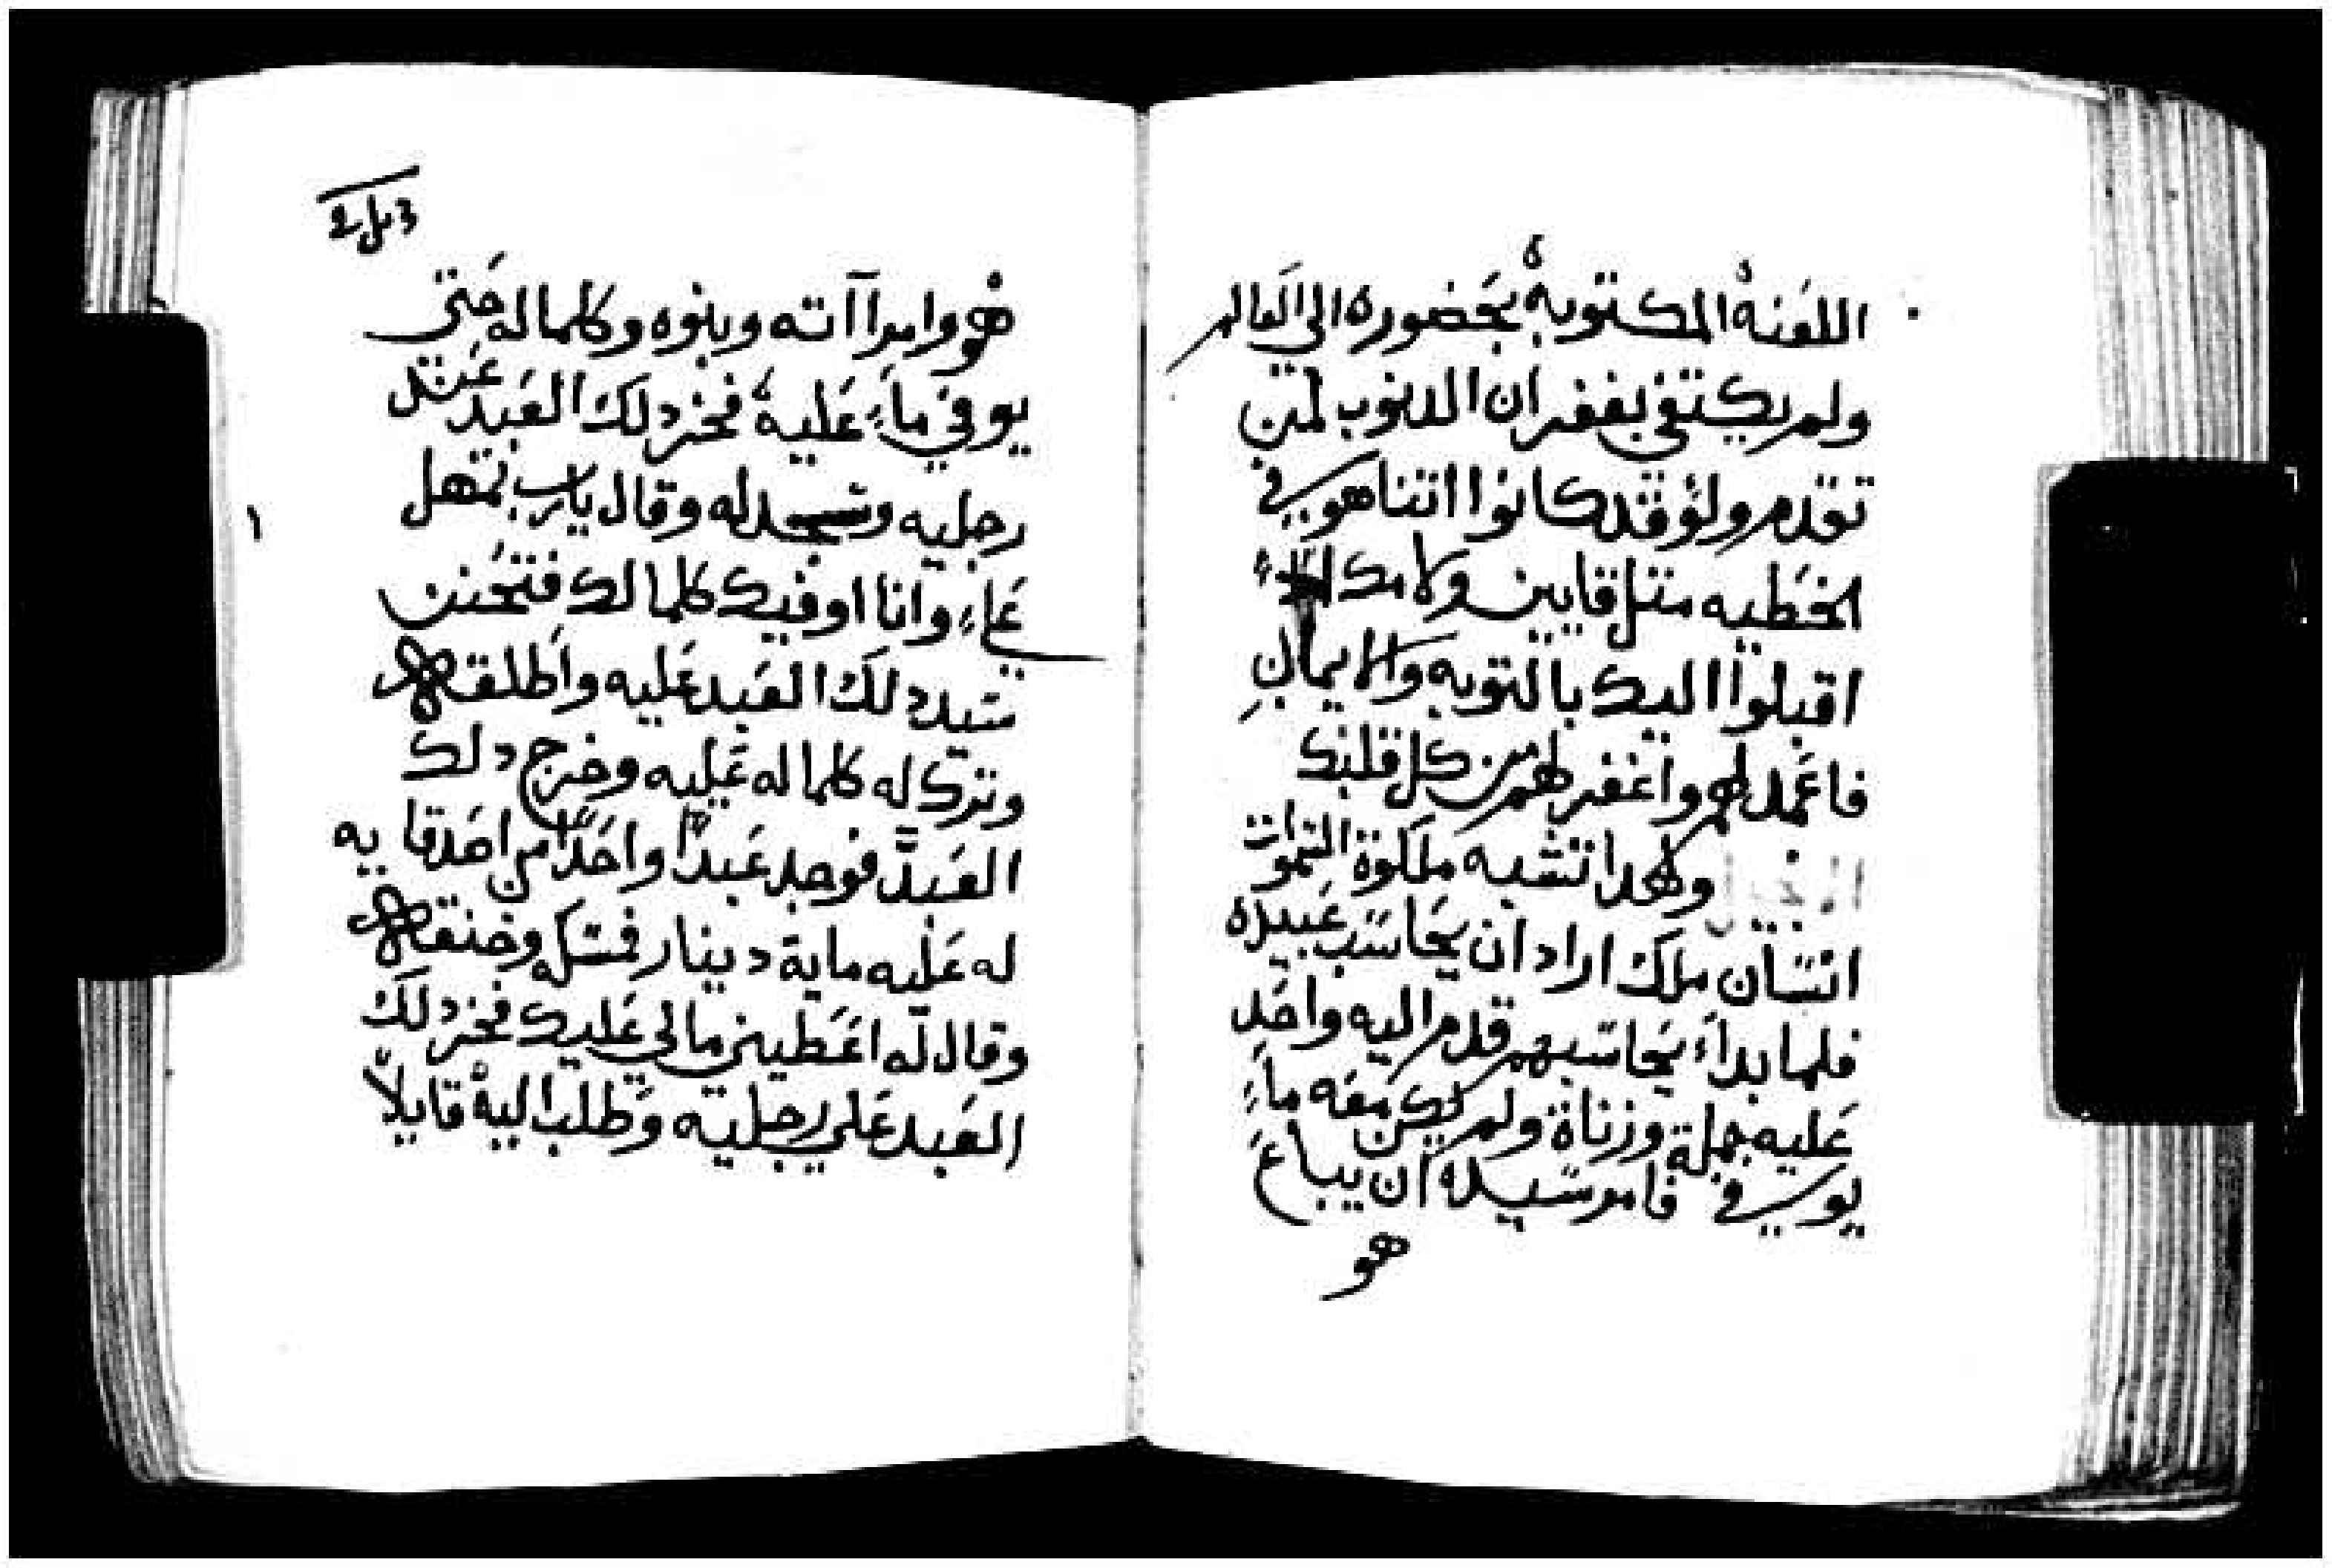 اللعنة المكتوبة بحضوره الي العالم
ولم يكتفي بغفران الدنوب لمن
تقدم ولو قد كانوا اتناهوا في
الخطيه متل قايين ولامك
اقبلوا اليك بالتوبه والايمان
فاعمل لهم واغفر لهم من كل قلبك
ولهدا تشبه ملكوة السموات
انسان ملك اراد ان يحاسب عبيده
فلما بداء يحاسبهم قدم اليه واحد
عليه جملة وزناة ولم يكن معه ماء
يوفي فامر سيده ان يباع
هو
هو وامراآته وبنوه وكلما له حتى
يوفي ماء عليه فخر دلك العبد عند
رجليه وسجد له وقال يارب تمهل
علىء وانا اوفيك كلما لك فتحنن
سيد دلك العبد عليه واطلقه
وترك له كلما له عليه وخرج دلك
العبد فوجد عبدا واحدا من اصدقايه
له عليه ماية دينار فمسكه وخنقه
وقال له اعطيني مالي عليك فخر دلك
العبد على رجليه وطلب اليه قايلا